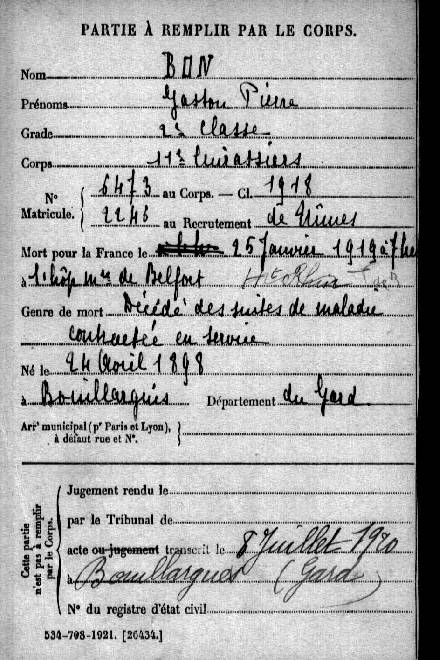 PARTIE À REMPLIR PAR LE CORPS.
Nom BON
Prénoms Gaston Pierre
Grade 2e Classe
Corps 11e Cuirassiers
N° Matricule. 6473 au Corps. — Cl. 1918
2246 au Recrutement de Nîmes
Mort pour la France le 25 Janvier 1919
à l'hôp m re de Belfort Ht Rhin
Genre de mort Décédé des suites de maladie
contractée en service
Né le 24 Avril 1898
à Bouillargues Département du Gard
Arrt municipal (pr Paris et Lyon), à défaut rue et N°.
Cette partie n'est pas à remplir par le Corps.
Jugement rendu le
par le Tribunal de
acte ou jugement transcrit le 8 Juillet 1920
à Bouillargues (Gard)
N° du registre d'état civil
534-708-1921. [26434.]